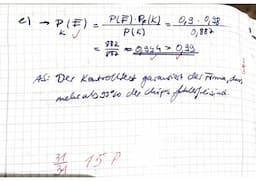 c) → P_K(F̄) = P(F̄) · P_F̄(K) / P(K) = 0,9 · 0,98 / 0,887
= 882/887 ≈ 0,994 > 0,99
AS: Der Kontrolltest garantiert der Firma, dass
mehr als 99% der Chips fehlerfrei sind.
31/31 15 P